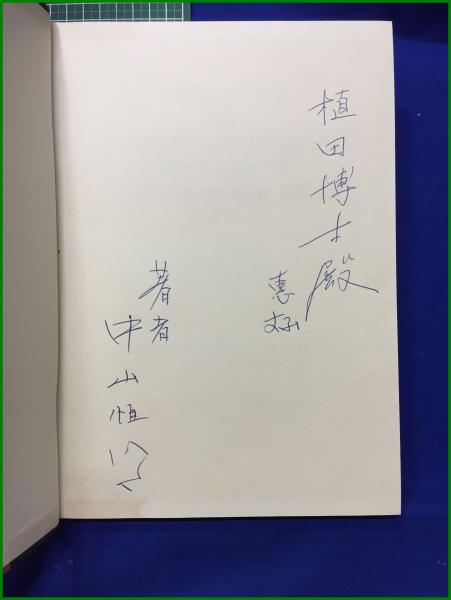 植田博士殿
惠存
著者
中山恒明